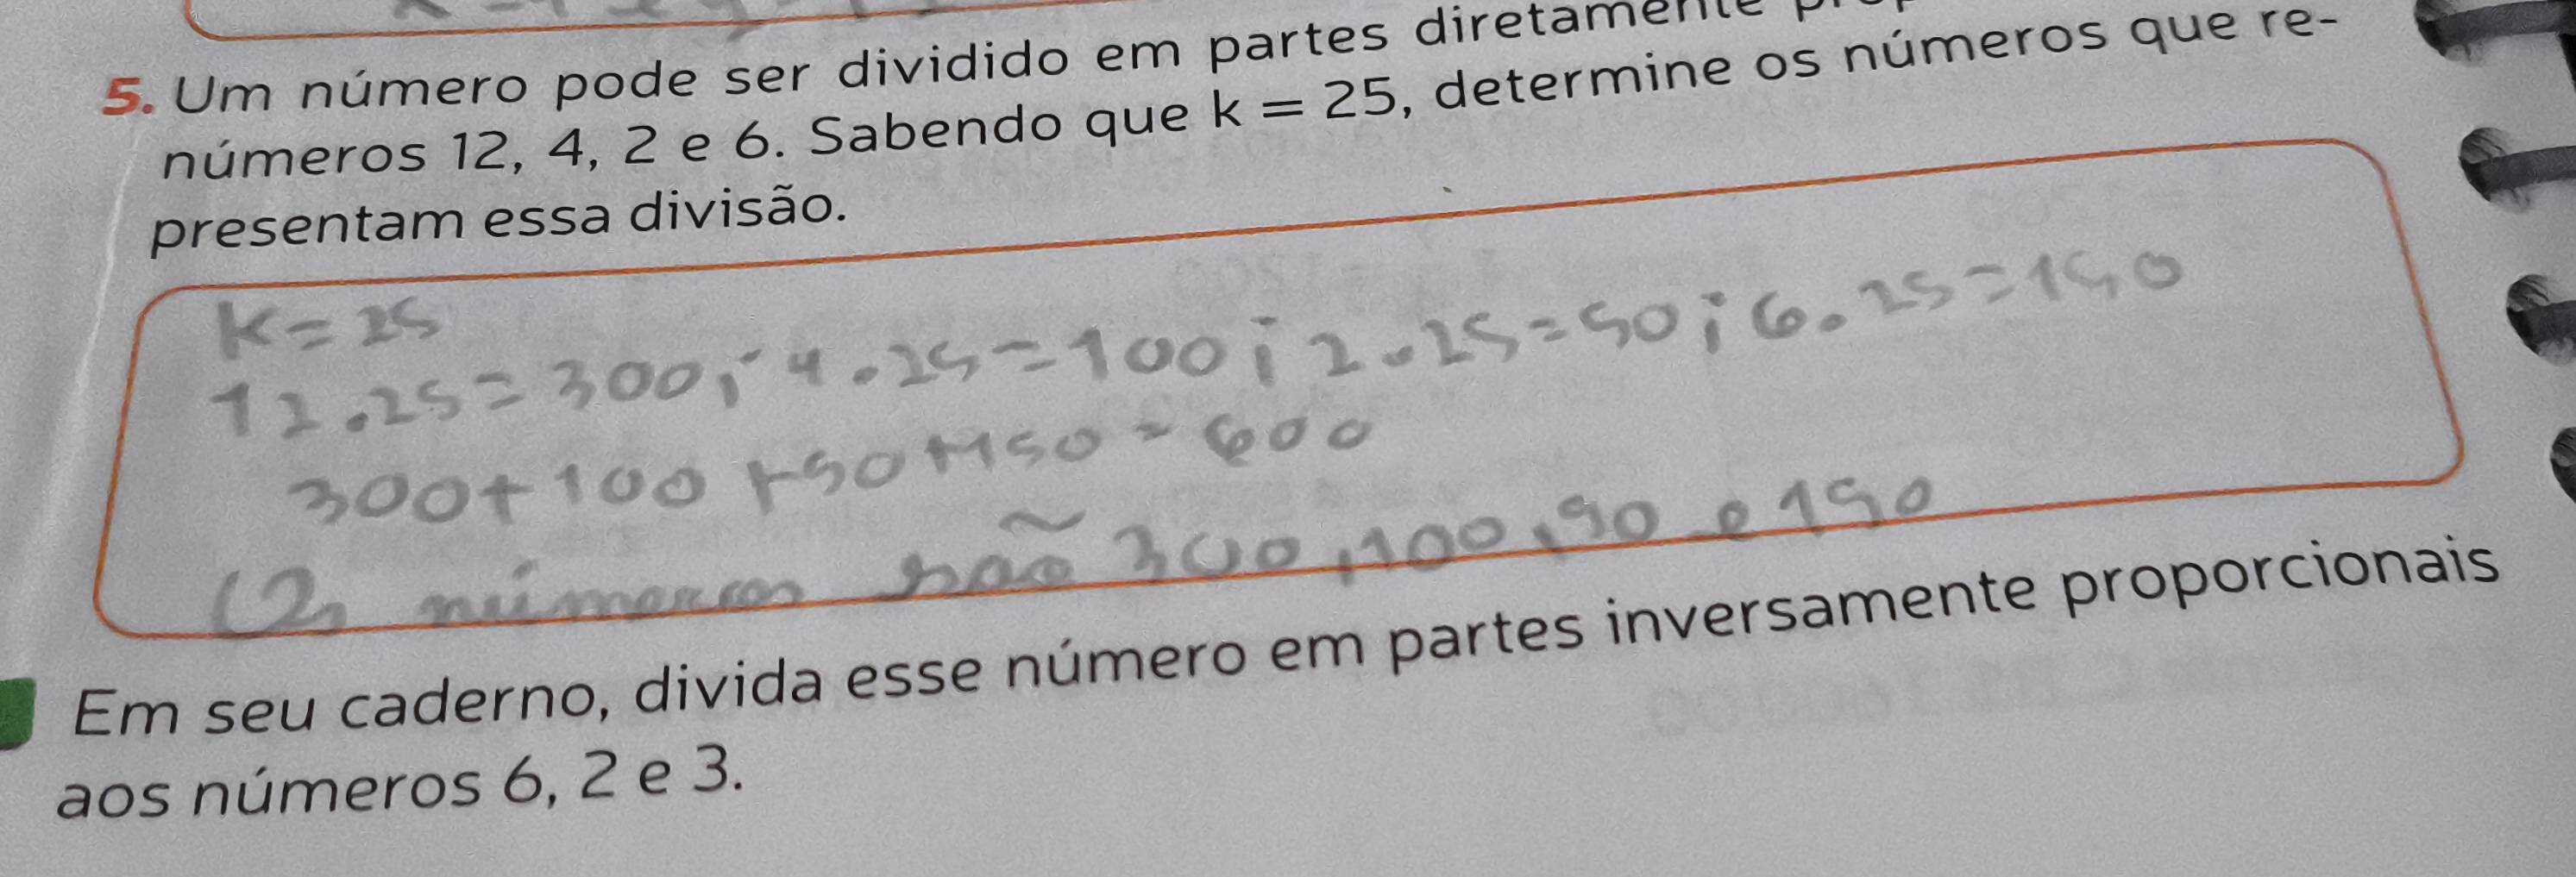 5. Um número pode ser dividido em partes diretamente
números 12, 4, 2 e 6. Sabendo que k = 25, determine os números que re-
presentam essa divisão.
K = 25
12.25 = 300; 4.25 = 100; 2.25 = 50; 6.25 = 150
300 + 100 + 50 + 150 = 600
números são 300, 100, 50 e 150
Em seu caderno, divida esse número em partes inversamente proporcionais
aos números 6, 2 e 3.